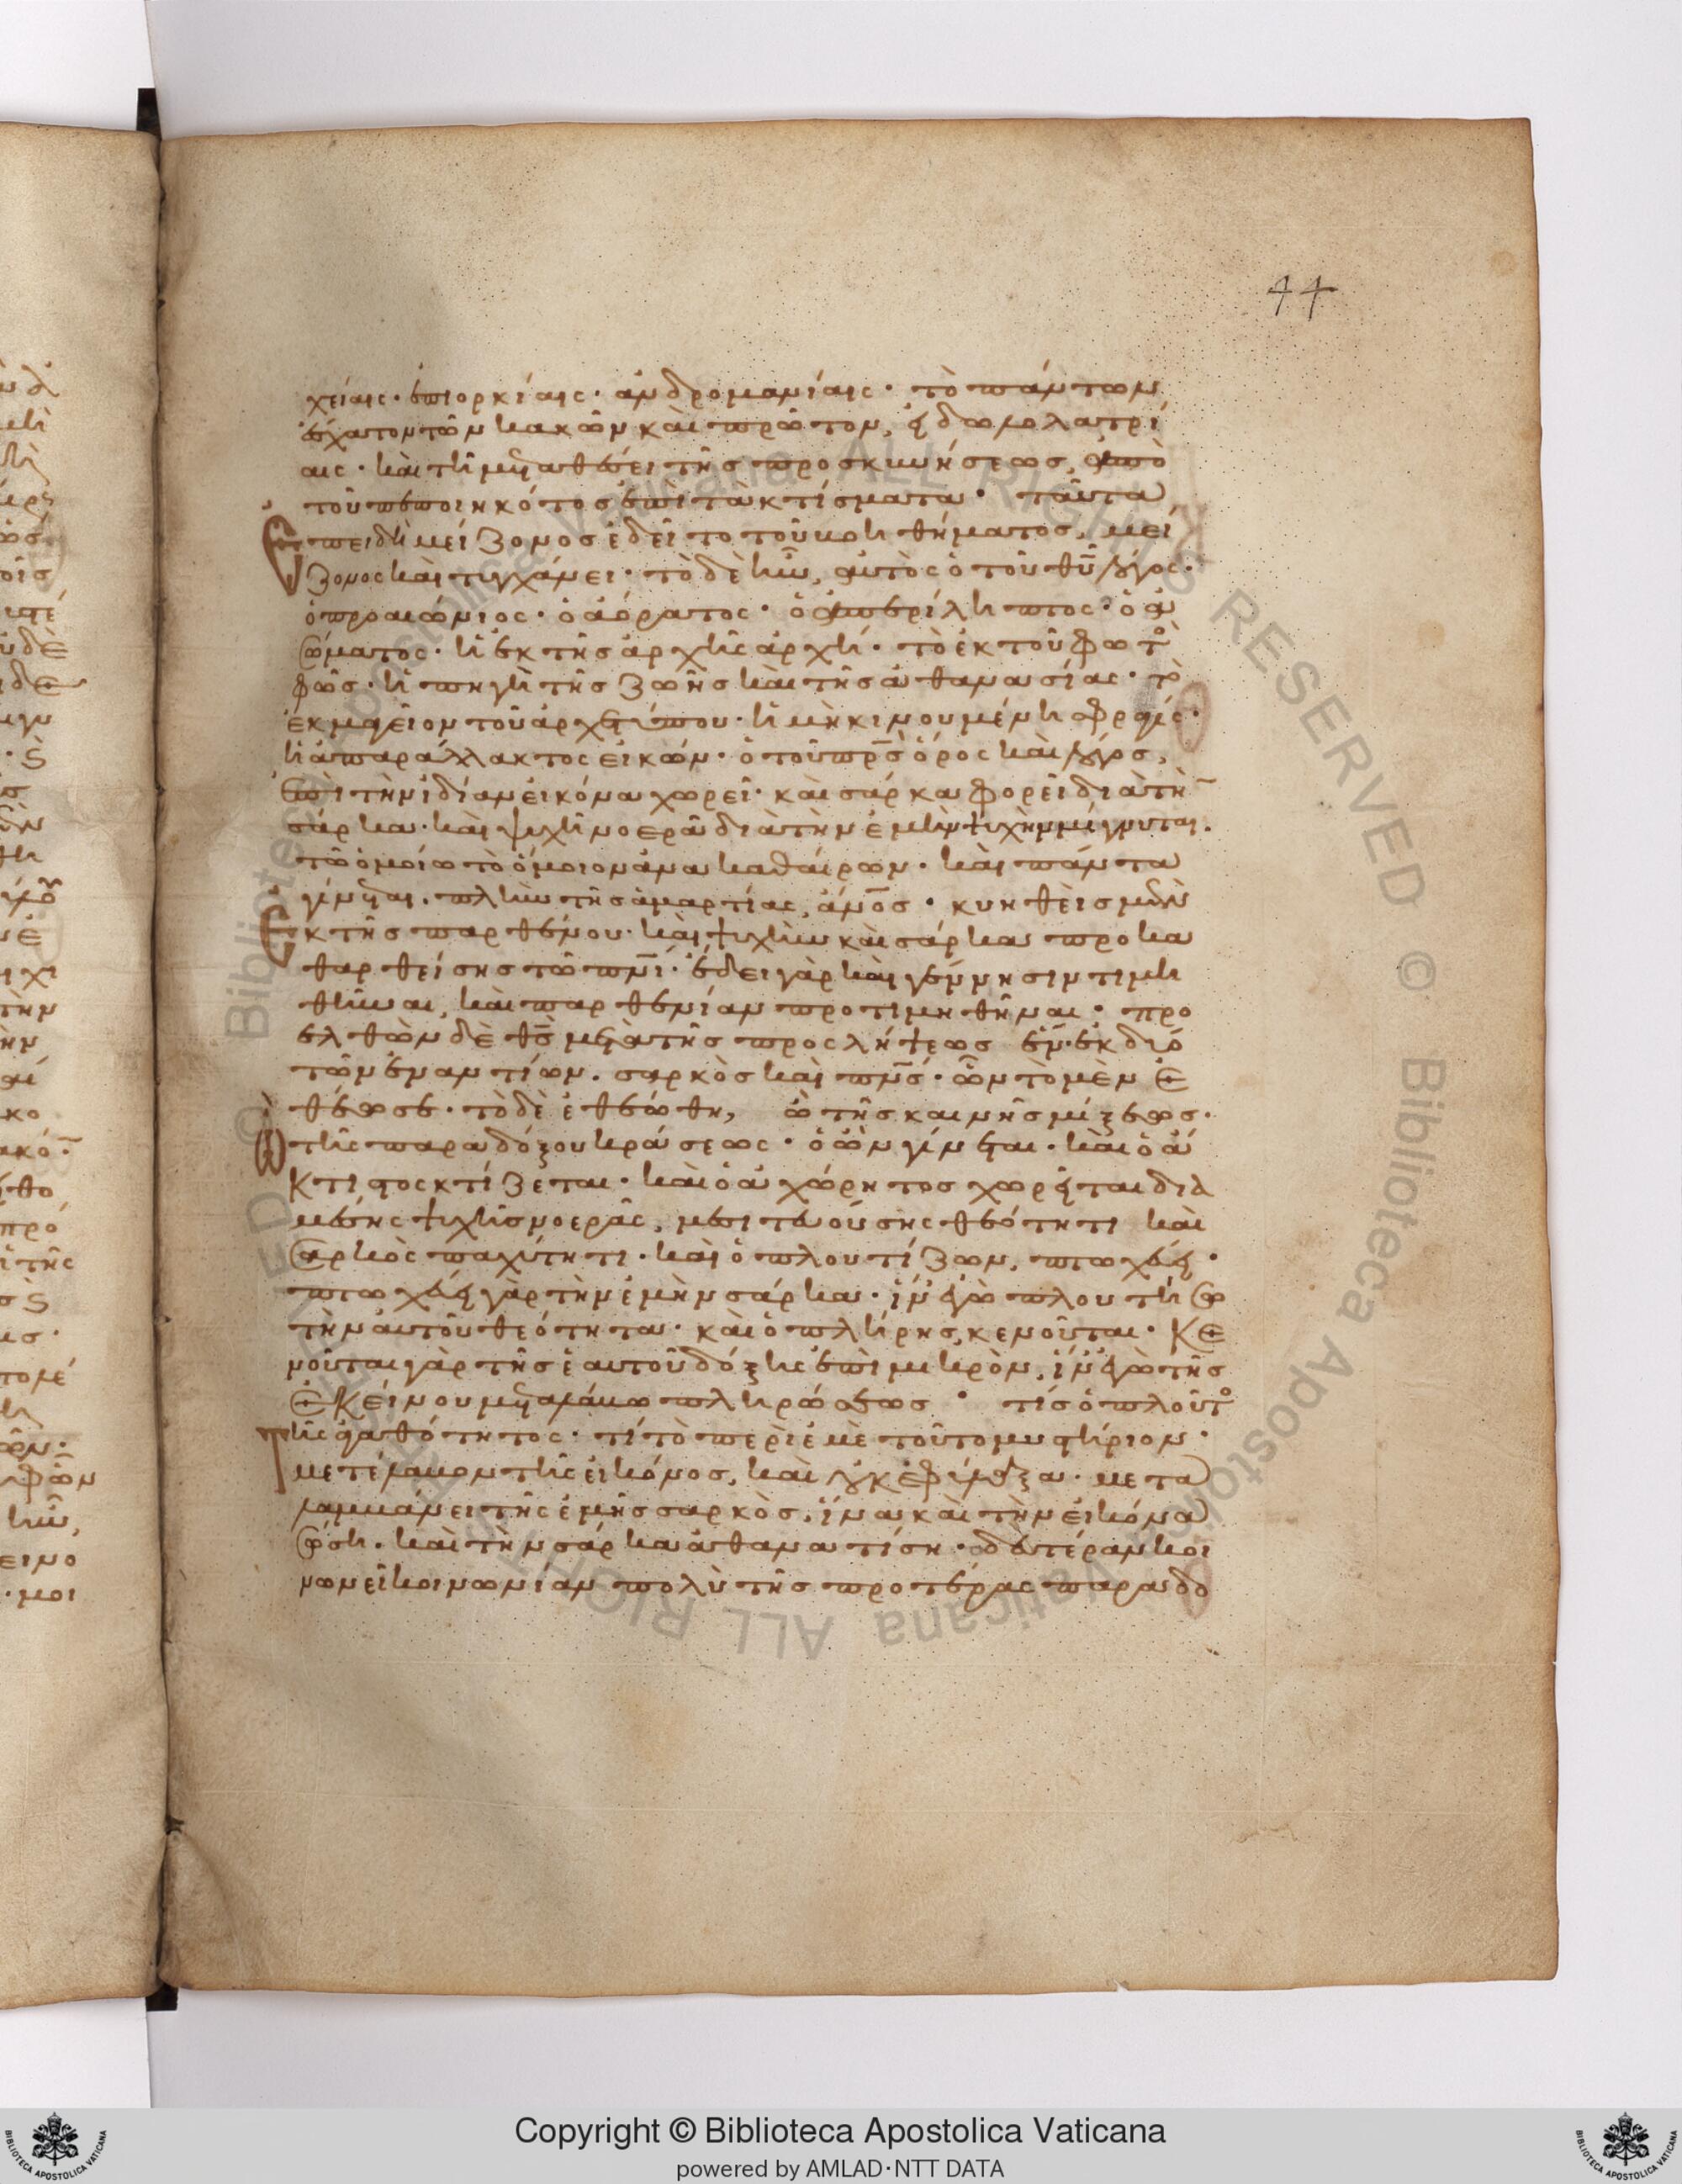 44
χείαις· ἐπιορκίαις· ἀνδρομανίαις· τὸ πάντων
ἔσχατον τῶν κακῶν καὶ πρῶτον, εἰδωλολατρί
αις· καὶ τῆ μεταθέσει τῆς προσκυνήσεως, ἀπὸ
τοῦ πεποιηκότος ἐπὶ τὰ κτίσματα· ταῦτα
ἐπειδὴ μείζονος ἐδεῖτο τοῦ βοηθήματος, μεί
ζονος καὶ τυγχάνει· τὸ δὲ ἦν, αὐτὸς ὁ τοῦ θυ λόγος·
ὁ προαιώνιος· ὁ ἀόρατος· ὁ ἀπερίληπτος· ὁ ἀ
σώματος· ἡ ἐκ τῆς ἀρχῆς ἀρχή· τὸ ἐκ τοῦ φωτὸ
φῶς· ἡ πηγὴ τῆς ζωῆς καὶ τῆς ἀθανασίας· τὸ
ἐκμαγεῖον τοῦ ἀρχετύπου· ἡ μὴ κινουμένη σφραγίς·
ἡ ἀπαράλλακτος εἰκών· ὁ τοῦ πρς ὅρος καὶ λόγος,
ἐπὶ τὴν ἰδίαν εἰκόνα χωρεῖ· καὶ σάρκα φορεῖ διὰ τὴ
σάρκα· καὶ ψυχῆ νοερᾶ διὰ τὴν ἐμὴν ψυχὴν μίγνυται·
τῶ ὁμοίω τὸ ὅμοιον ἀνακαθαίρων· καὶ πάντα
γίνεται, πλὴν τῆς ἁμαρτίας, ἄνος· κυηθεὶς μὲν
ἐκ τῆς παρθένου· καὶ ψυχὴν καὶ σάρκα προκα
θαρθείσης τῶ πνι· ἔδει γὰρ καὶ γέννησιν τιμη
θῆναι, καὶ παρθενίαν προτιμηθῆναι· προ
ελθὼν δὲ θς μετὰ τῆς προσλήψεως ἓν· ἐκ δύο
τῶν ἐναντίων· σαρκὸς καὶ πνς· ὧν τὸ μὲν ἐ
θέωσε· τὸ δὲ ἐθεώθη, ὢ τῆς καινῆς μίξεως·
ὢ τῆς παραδόξου κράσεως· ὁ ὢν γίνεται· καὶ ὁ ἄ
κτιστος κτίζεται· καὶ ὁ ἀχώρητος χωρεῖται διὰ
μέσης ψυχῆς νοερᾶς, μεσιτευούσης θεότητι καὶ
σαρκὸς παχύτητι· καὶ ὁ πλουτίζων, πτωχεύει·
πτωχεύει γὰρ τὴν ἐμὴν σάρκα· ἵν ἐγὼ πλουτήσω
τὴν αὐτοῦ θεότητα· καὶ ὁ πλήρης, κενοῦται· κε
νοῦται γὰρ τῆς ἑαυτοῦ δόξης ἐπὶ μικρὸν, ἵν ἐγὼ τῆς
ἐκείνου μεταλάβω πληρώσεως· τίς ὁ πλοῦτο
τῆς ἀγαθότητος· τί τὸ περὶ ἐμὲ τοῦτο μυστήριον·
μετέλαβον τῆς εἰκόνος, καὶ οὐκ ἐφύλαξα· μετα
λαμβάνει τῆς ἐμῆς σαρκὸς, ἵνα καὶ τὴν εἰκόνα
σώση· καὶ τὴν σάρκα ἀθανατίση· δευτέραν κοι
νωνεῖ κοινωνίαν πολὺ τῆς προτέρας παραδο
Copyright © Biblioteca Apostolica Vaticana
powered by AMLAD·NTT DATA